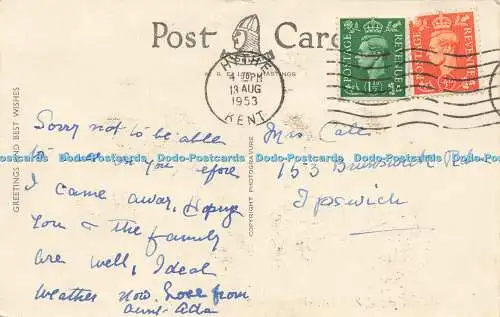 Post Card
HYTHE
4 PM
13 AUG
1953
KENT
POSTAGE REVENUE
POSTAGE REVENUE
GREETINGS AND BEST WISHES
COPYRIGHT PHOTOGRAVURE
Sorry not to be able
to on you efore
I came away. Hoping
You & the family
are well, Ideal
weather now. Love from
Aunt Ada
Mrs Cale
153 Brunswick Rd
Ipswich
Dodo-Postcards Dodo-Postcards Dodo-Postcards Dodo-Postcards Dodo-Postcards